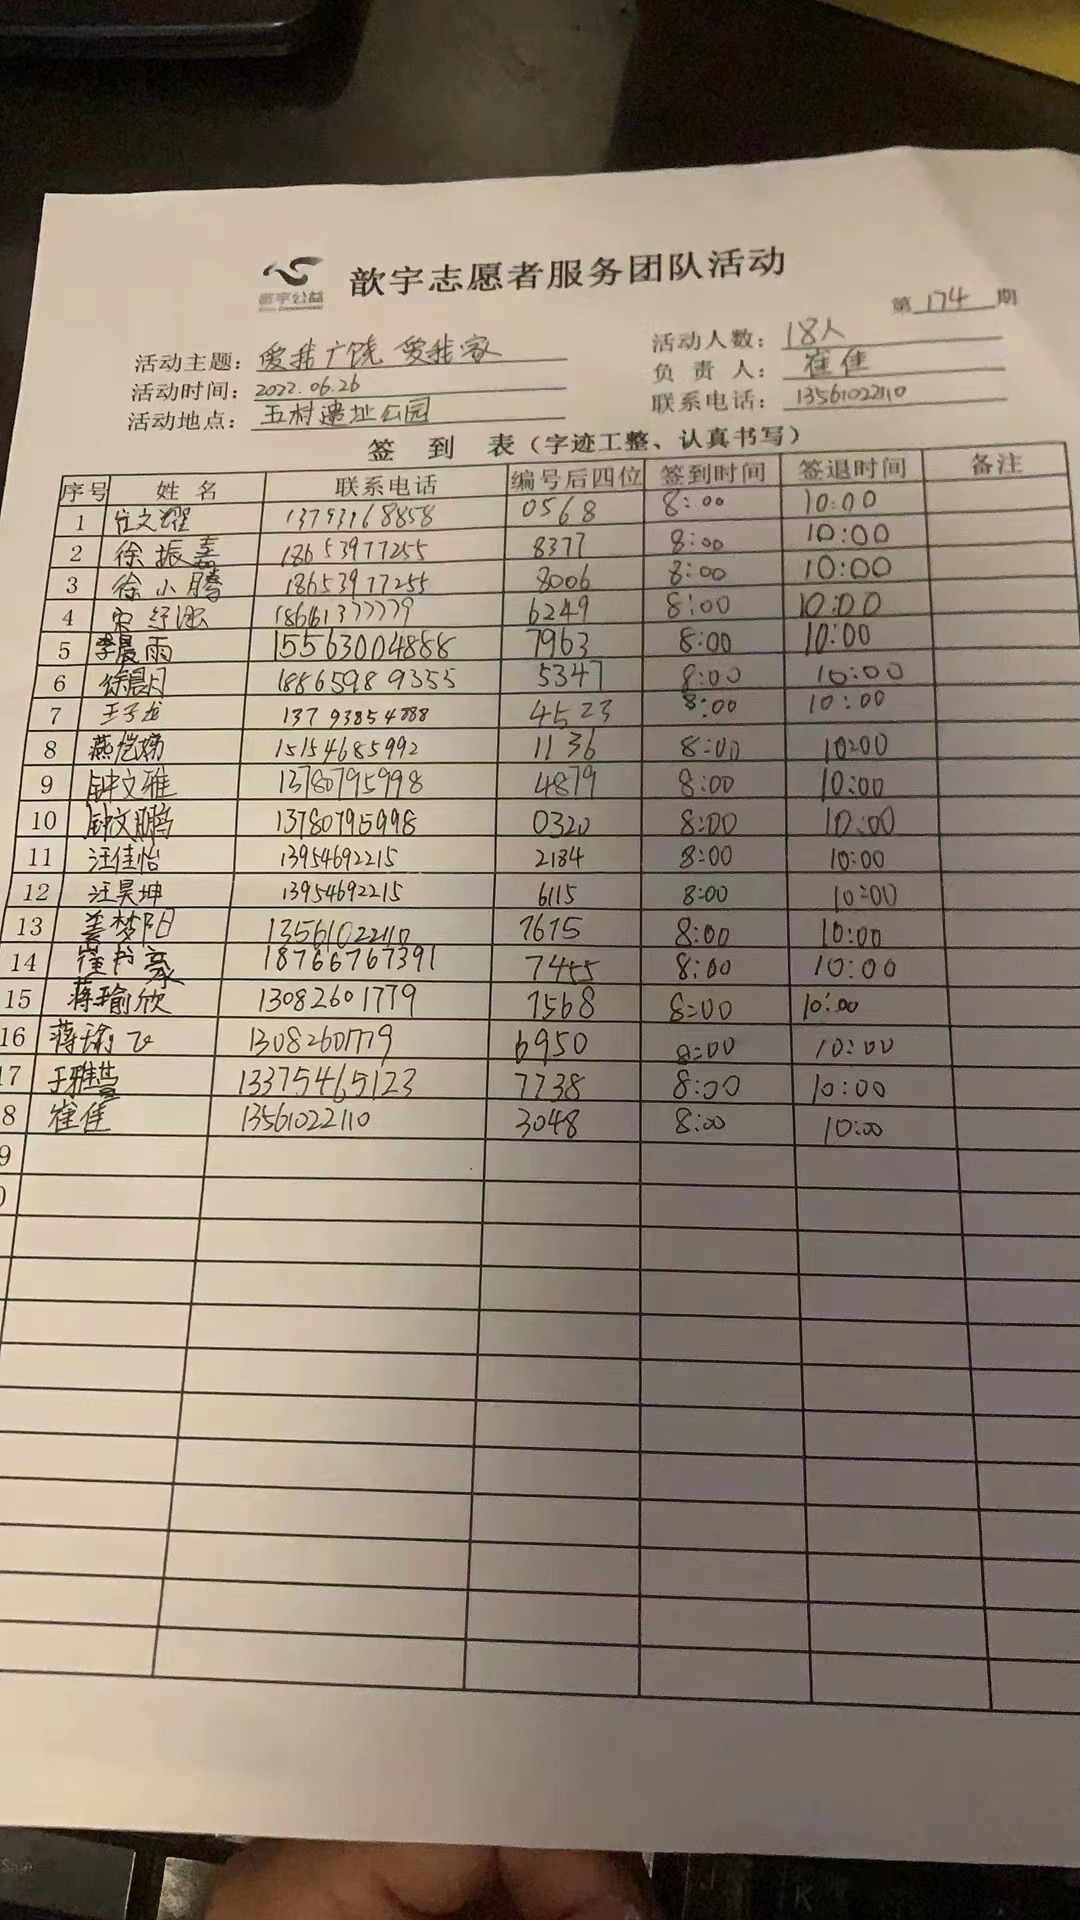 歆宇公益
歆宇志愿者服务团队活动
第174期
活动主题：爱我广饶 爱我家
活动人数：18人
活动时间：2022.06.26
负责人：崔佳
活动地点：五村遗址公园
联系电话：13561022110
签到表（字迹工整、认真书写）
序号 姓名 联系电话 编号后四位 签到时间 签退时间 备注
1 位文耀 13793168858 0568 8:00 10:00
2 徐振嘉 18653977255 8377 8:00 10:00
3 徐小腾 18653977255 8006 8:00 10:00
4 宋 18661377779 6249 8:00 10:00
5 李晨雨 15563004888 7963 8:00 10:00
6 徐晨月 18865989355 5347 8:00 10:00
7 王子龙 4523 8:00 10:00
8 燕 15154685992 1136 8:00 10:00
9 钟文雅 13780795998 4879 8:00 10:00
10 钟文鹏 13780795998 0320 8:00 10:00
11 汪佳怡 13954692215 2184 8:00 10:00
12 汪昊坤 13954692215 6115 8:00 10:00
13 姜梦阳 13561022110 7675 8:00 10:00
14 崔 豪 18766767391 7455 8:00 10:00
15 蒋瑜欣 13082601779 7568 8:00 10:00
16 蒋瑜飞 13082601779 6950 8:00 10:00
17 于雅 13375465123 7738 8:00 10:00
8 崔佳 13561022110 3048 8:00 10:00
9
0
Shift
K